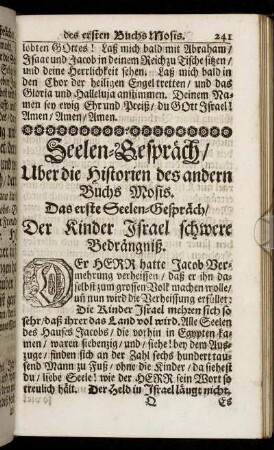 des ersten Buchs Mosis. 241
lobten GOttes! Laß mich bald mit Abraham/
Isaac und Jacob in deinem Reich zu Tische sitzen/
und deine Herrlichkeit sehen. Laß mich bald in
den Chor der heiligen Engel tretten/ und das
Gloria und Halleluja anstimmen. Deinem Na-
men sey ewig Ehr und Preiß/ du GOtt Israel!
Amen/ Amen/ Amen.
Seelen-Gespräch/
Uber die Historien des andern
Buchs Mosis.
Das erste Seelen-Gespräch/
Der Kinder Israel schwere
Bedrängniß.
DEr HERR hatte Jacob Ver-
mehrung verheissen/ daß er ihn da-
selbst zum grossen Volk machen wolle/
uñ nun wird die Verheissung erfüllet:
Die Kinder Israel mehren sich so
sehr/ daß ihrer das Land vol wird. Alle Seelen
des Hauses Jacobs/ die vorhin in Egypten ka-
men/ waren siebenzig/ und/ siehe! bey dem Aus-
zuge/ finden sich an der Zahl sechs hundert tau-
send Mann zu Fuß/ ohne die Kinder/ da siehest
du/ liebe Seele! wie der HERR sein Wort so
treulich hält. Der Held in Israel läugt nicht.
Q Es